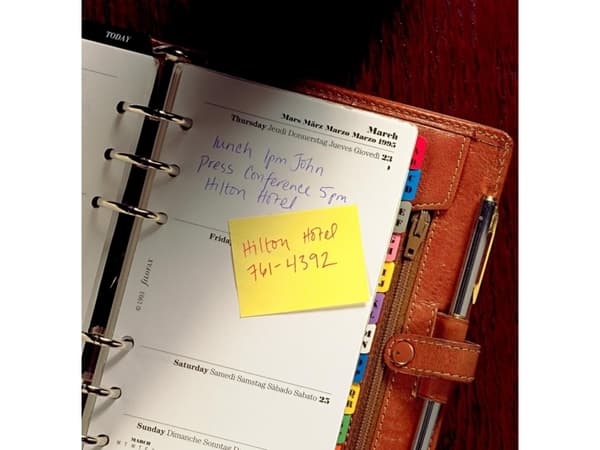 TODAY
March
Mars März Marzo Marzo 1995
Thursday Jeudi Donnerstag Jueves Giovedi 23
lunch 1pm John
Press Conference 5pm
Hilton Hotel
Hilton Hotel
761-4392
Friday
© 1993 FILOFAX
Saturday Samedi Samstag Sàbado Sabato 25
Sunday Dimanche Sonntag
MARCH
M T W T F